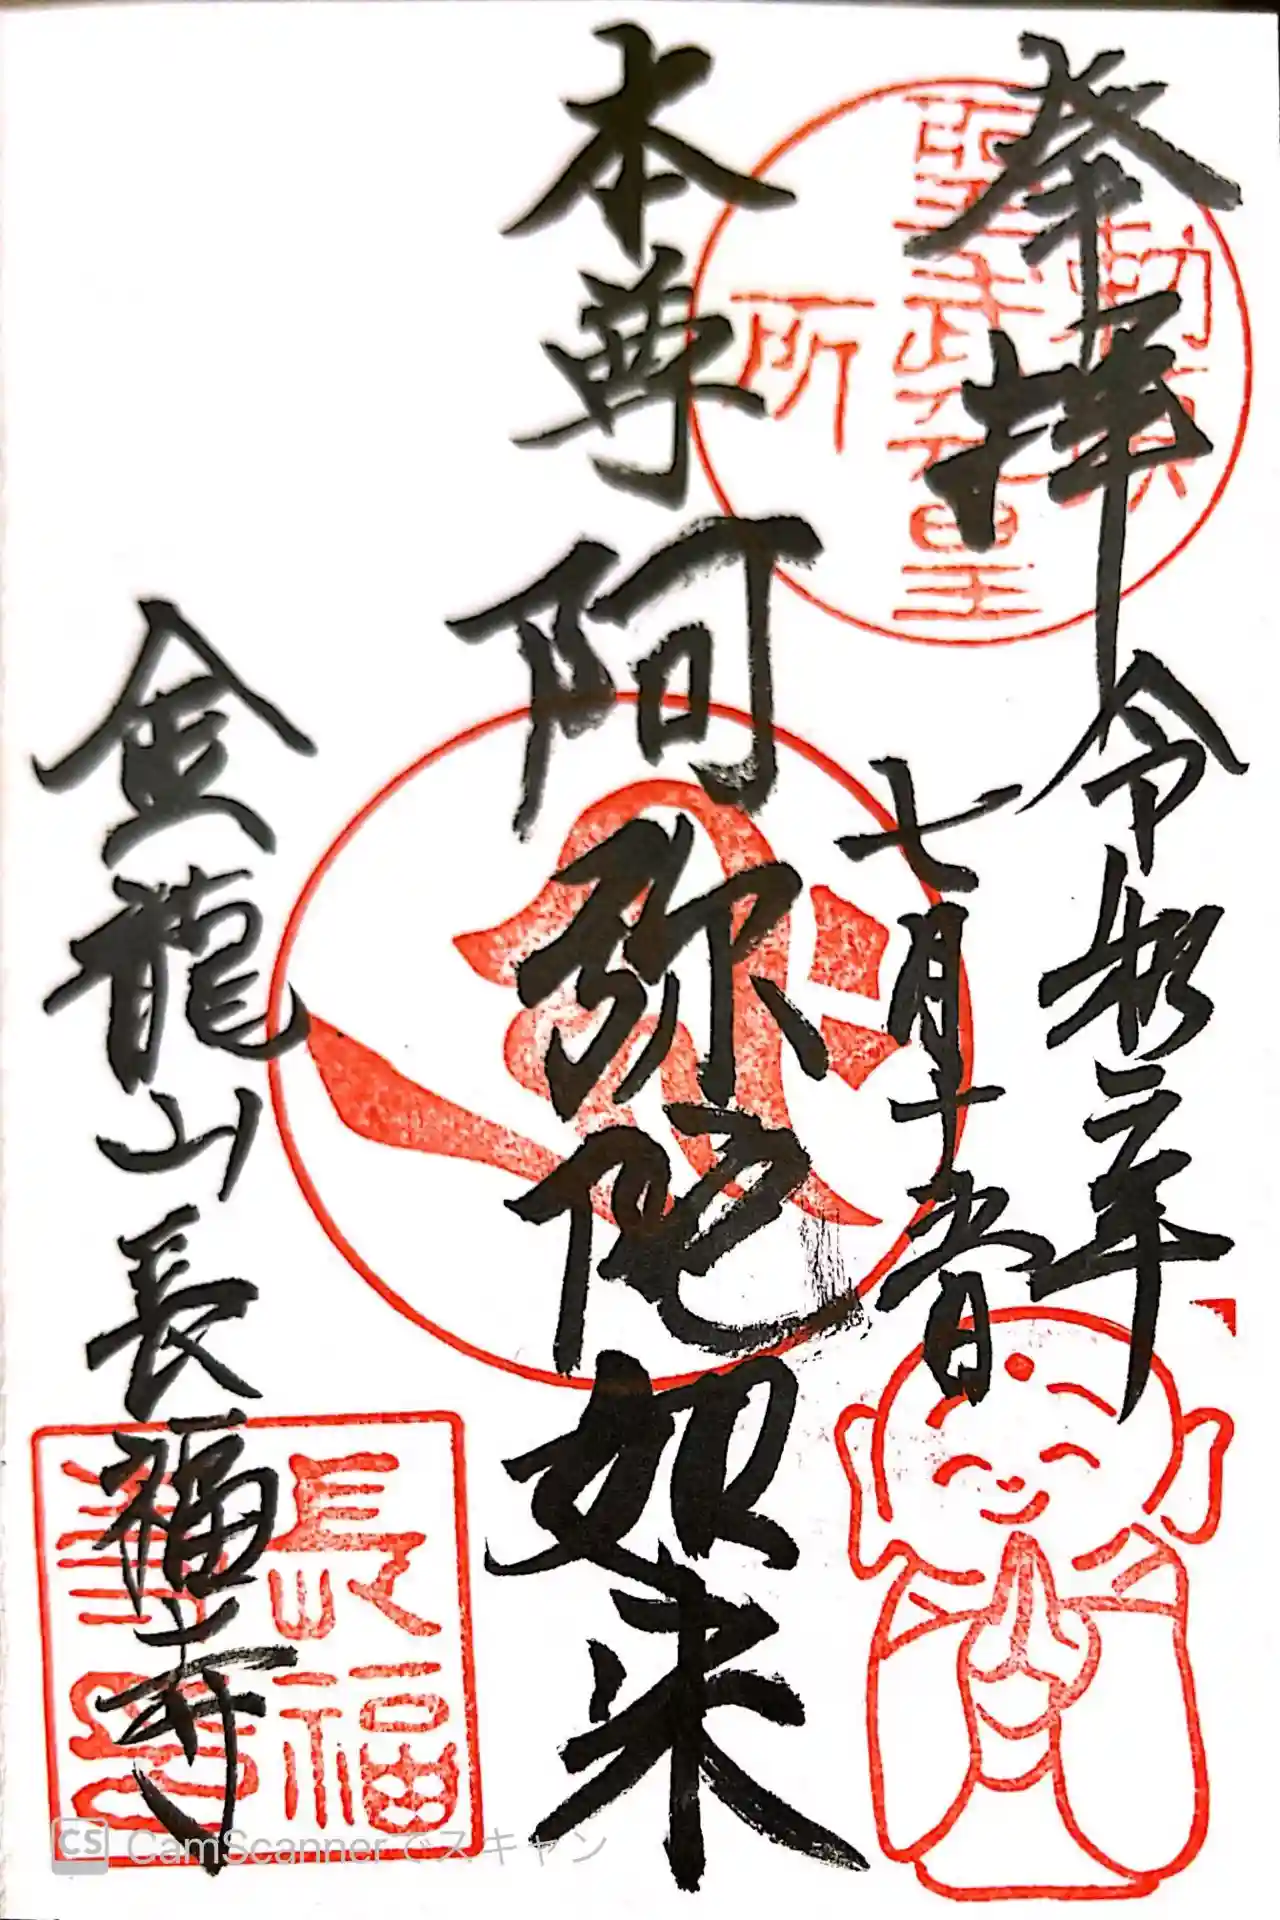 奉拝 令和二年
七月十日
勅願
聖武天皇
所
本尊 阿弥陀如来
金龍山 長福寺
長福
CS CamScannerでスキャン